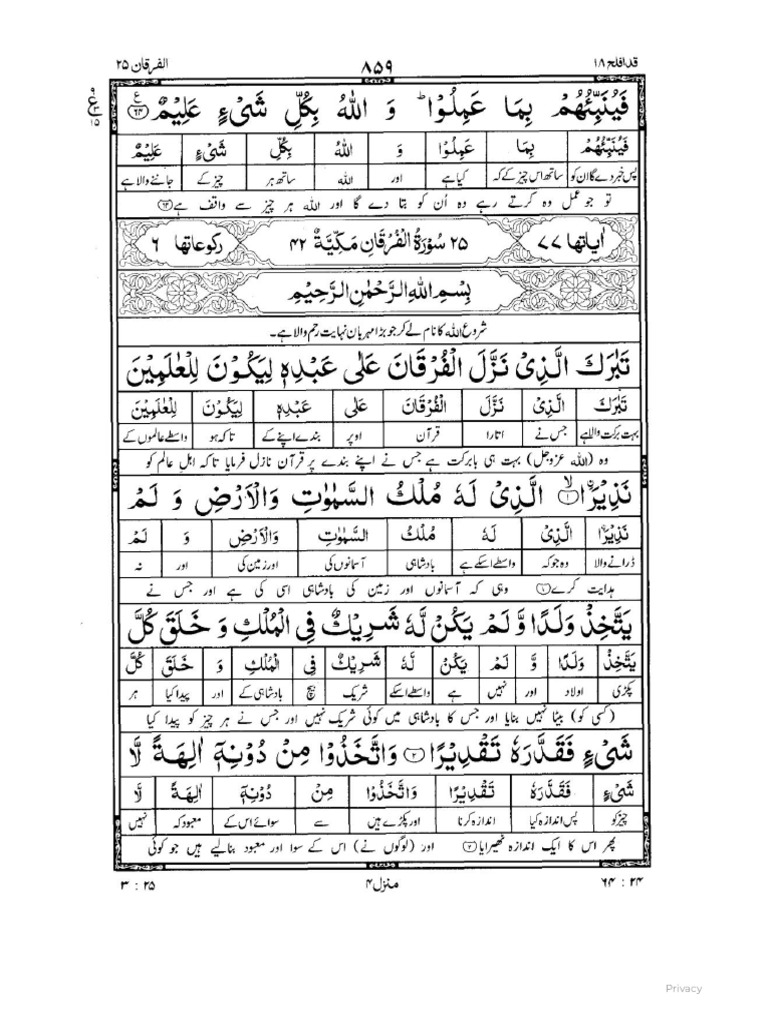 قدافلح ١٨ ٨۵٩ الفرقان ٢۵
فَيُنَبِّئُهُمْ بِمَا عَمِلُوْا ؕ وَ اللّٰهُ بِكُلِّ شَيْءٍ عَلِيْمٌ ﴿٦۴﴾ ع
٩ ع ١۵
فَيُنَبِّئُهُمْ بِمَا عَمِلُوْا وَ اللّٰهُ بِكُلِّ شَيْءٍ عَلِيْمٌ
پس خبر دے گا ان کو ساتھ اس چیز کے کہ کیا ہے اور اللہ ساتھ ہر چیز کے جاننے والا ہے
تو جو عمل وہ کرتے رہے وہ اُن کو بتا دے گا اور اللہ ہر چیز سے واقف ہے ﴿٦۴﴾
اٰیاتها ٧٧ ٢۵ سُوْرَةُ الْفُرْقَانِ مَكِّيَّةٌ ۴٢ رکوعاتها ٦
بِسْمِ اللّٰهِ الرَّحْمٰنِ الرَّحِيْمِ
شروع اللہ کا نام لے کر جو بڑا مہربان نہایت رحم والا ہے۔
تَبٰرَكَ الَّذِيْ نَزَّلَ الْفُرْقَانَ عَلٰى عَبْدِهٖ لِيَكُوْنَ لِلْعٰلَمِيْنَ
تَبٰرَكَ الَّذِيْ نَزَّلَ الْفُرْقَانَ عَلٰى عَبْدِهٖ لِيَكُوْنَ لِلْعٰلَمِيْنَ
بہت برکت والا ہے جس نے اتارا قرآن اوپر بندے اپنے کے تاکہ ہو واسطے عالموں کے
وہ (اللہ عزوجل) بہت ہی بابرکت ہے جس نے اپنے بندے پر قرآن نازل فرمایا تاکہ اہل عالم کو
نَذِيْرًا ﴿١﴾ ۙ الَّذِيْ لَهٗ مُلْكُ السَّمٰوٰتِ وَالْاَرْضِ وَ لَمْ
نَذِيْرًا الَّذِيْ لَهٗ مُلْكُ السَّمٰوٰتِ وَالْاَرْضِ وَ لَمْ
ڈرانے والا وہ جو کہ واسطے اسکے ہے بادشاہی آسمانوں کی اور زمین کی اور نہ
ہدایت کرے ﴿١﴾ وہی کہ آسمانوں اور زمین کی بادشاہی اسی کی ہے اور جس نے
يَتَّخِذْ وَلَدًا وَّ لَمْ يَكُنْ لَّهٗ شَرِيْكٌ فِي الْمُلْكِ وَ خَلَقَ كُلَّ
يَتَّخِذْ وَلَدًا وَّ لَمْ يَكُنْ لَّهٗ شَرِيْكٌ فِي الْمُلْكِ وَ خَلَقَ كُلَّ
پکڑی اولاد اور نہیں ہے واسطے اسکے شریک بیچ بادشاہی کے اور پیدا کیا ہر
(کسی کو) بیٹا نہیں بنایا اور جس کا بادشاہی میں کوئی شریک نہیں اور جس نے ہر چیز کو پیدا کیا
شَيْءٍ فَقَدَّرَهٗ تَقْدِيْرًا ﴿٢﴾ وَاتَّخَذُوْا مِنْ دُوْنِهٖۤ اٰلِهَةً لَّا
شَيْءٍ فَقَدَّرَهٗ تَقْدِيْرًا وَاتَّخَذُوْا مِنْ دُوْنِهٖۤ اٰلِهَةً لَّا
چیز کو پس اندازہ کیا اندازہ کرنا اور پکڑے ہیں سے سوائے اس کے معبود کہ نہیں
پھر اس کا ایک اندازہ ٹھہرایا ﴿٢﴾ اور (لوگوں نے) اس کے سوا اور معبود بنا لیے ہیں جو کوئی
٢۴ : ٦۴ منزل ۴ ٢۵ : ٣
Privacy